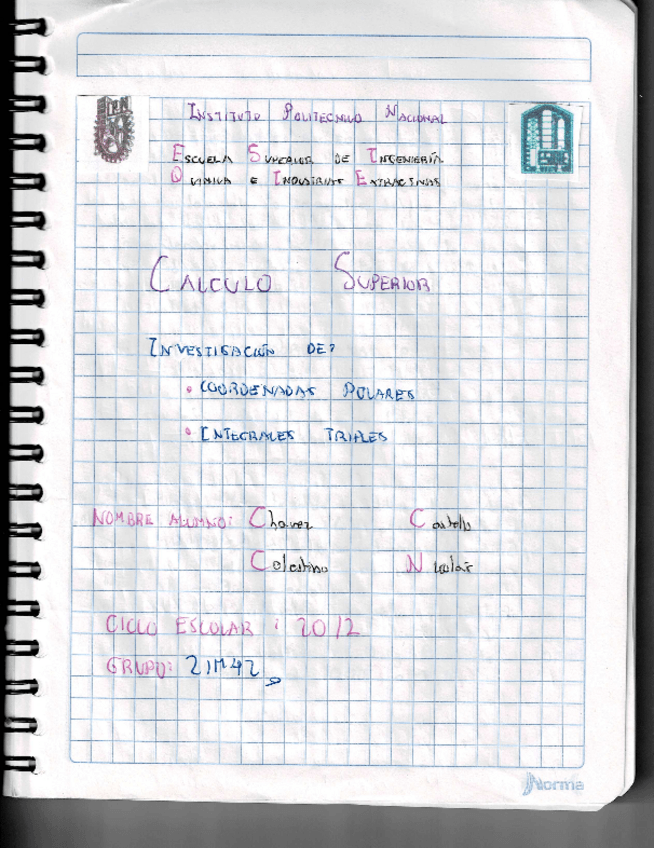 INSTITUTO POLITECNICO NACIONAL
ESCUELA SUPERIOR DE INGENIERÍA
QUIMICA E INDUSTRIAS EXTRACTIVAS
CALCULO SUPERIOR
INVESTIGACIÓN DE:
• COORDENADAS POLARES
• INTEGRALES TRIPLES
NOMBRE ALUMNO: Chavez
Celestino Nicolás
CICLO ESCOLAR : 20/2
GRUPO: 2IM42
Norma